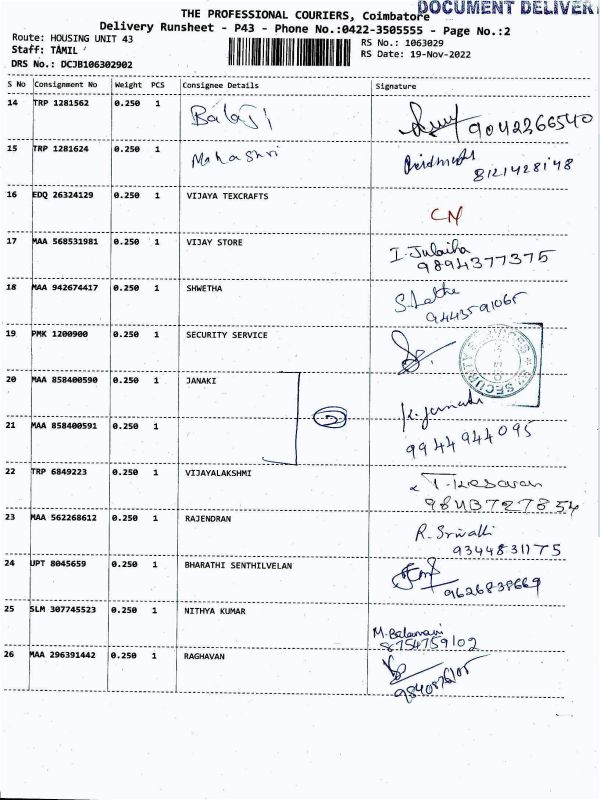 DOCUMENT DELIVER
THE PROFESSIONAL COURIERS, Coimbatore
Delivery Runsheet - P43 - Phone No.:0422-3505555 - Page No.:2
Route: HOUSING UNIT 43
RS No.: 1063029
Staff: TAMIL
RS Date: 19-Nov-2022
DRS No.: DCJB106302902
S No Consignment No Weight PCS Consignee Details Signature
14 TRP 1281562 0.250 1 Balaji 9042366540
15 TRP 1281624 0.250 1 Mahashri 8121428148
16 EDQ 26324129 0.250 1 VIJAYA TEXCRAFTS CN
17 MAA 568531981 0.250 1 VIJAY STORE I. Julaiha
9894377375
18 MAA 942674417 0.250 1 SHWETHA S. Latha
9443591065
19 PMK 1200900 0.250 1 SECURITY SERVICE
20 MAA 858400590 0.250 1 JANAKI 2
K. Janaki
21 MAA 858400591 0.250 1 9944944095
22 TRP 6849223 0.250 1 VIJAYALAKSHMI T. Kesavan
9843727854
23 MAA 562268612 0.250 1 RAJENDRAN R. Srivalli
9344831175
24 UPT 8045659 0.250 1 BHARATHI SENTHILVELAN
9626838669
25 SLM 307745523 0.250 1 NITHYA KUMAR
M. Balamani
8754759102
26 MAA 296391442 0.250 1 RAGHAVAN